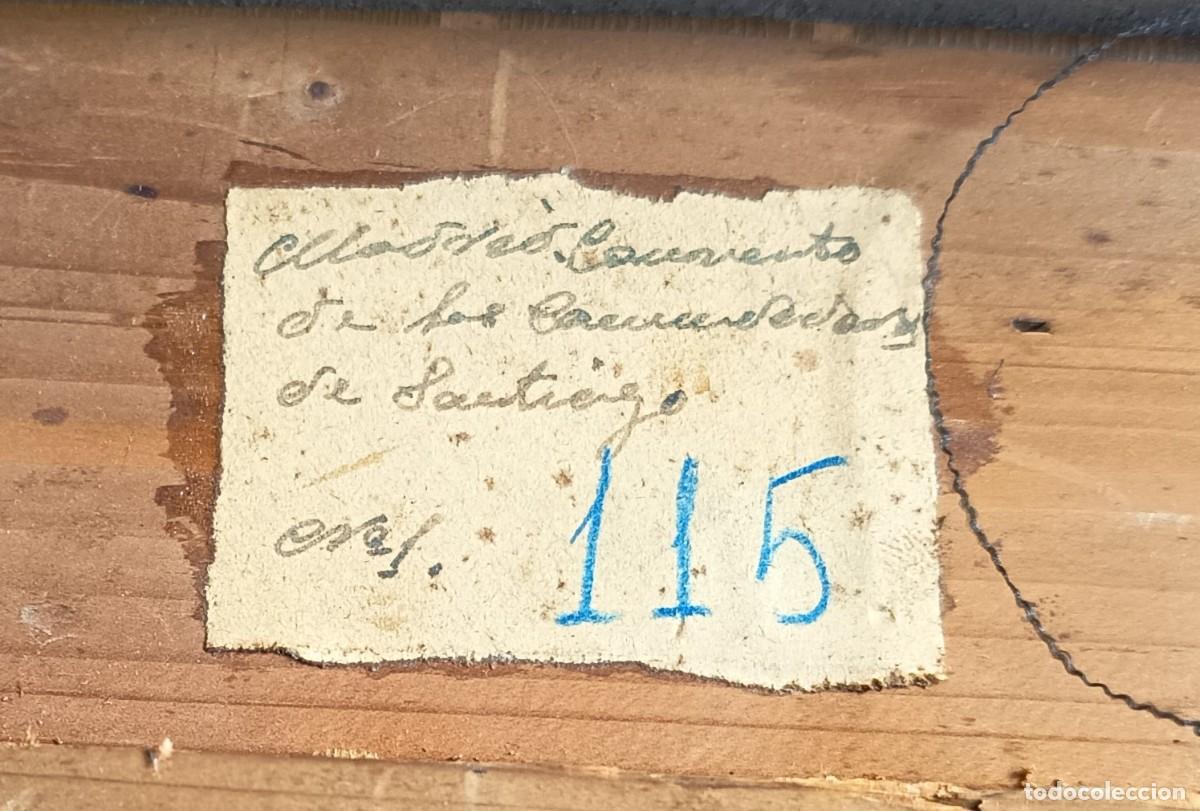 Madrid. Convento
de las Comendadoras
de Santiago
115
todocoleccion